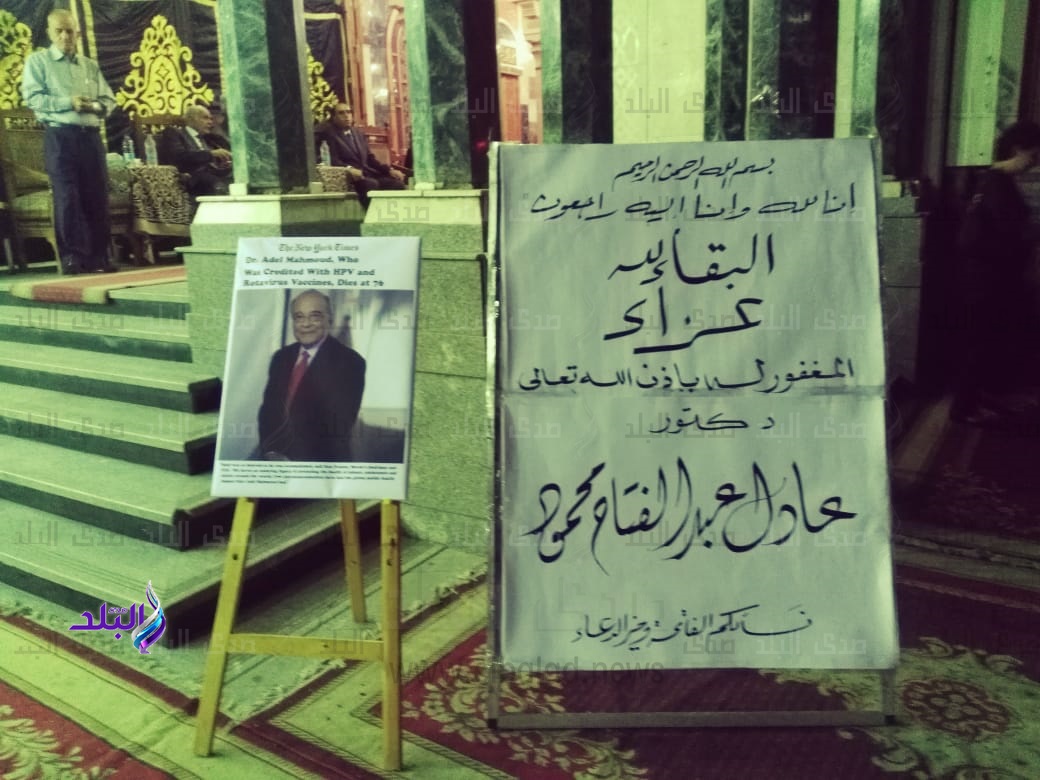 The New York Times
Dr. Adel Mahmoud, Who
Was Credited With HPV and
Rotavirus Vaccines, Dies at 76
بسم الله الرحمن الرحيم
إنا لله وإنا إليه راجعون
البقاء لله
عزاء
المغفور له بإذن الله تعالى
دكتور
عادل عبد الفتاح محمود
نسألكم الفاتحة وخير الدعاء
صدى البلد